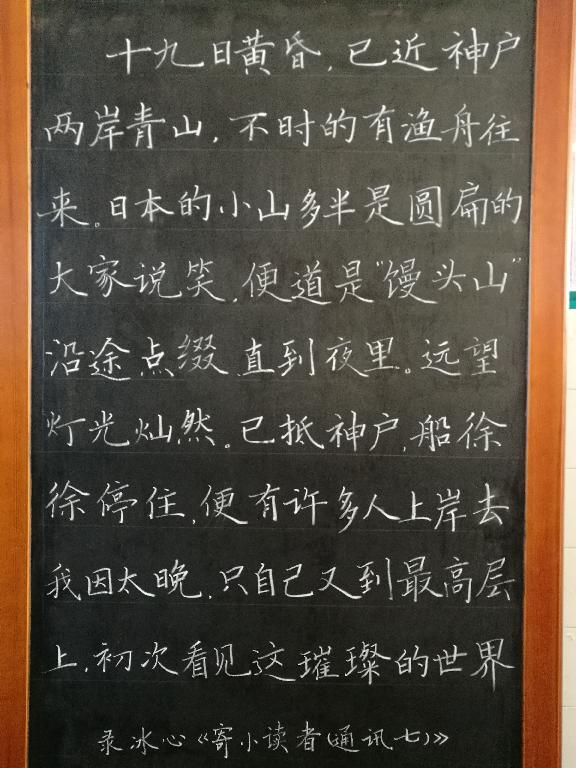 十九日黄昏，已近神户
两岸青山，不时的有渔舟往
来。日本的小山多半是圆扁的
大家说笑，便道是“馒头山”
沿途点缀，直到夜里。远望
灯光灿然。已抵神户，船徐
徐停住，便有许多人上岸去
我因太晚，只自己又到最高层
上，初次看见这璀璨的世界
录冰心《寄小读者（通讯七）》